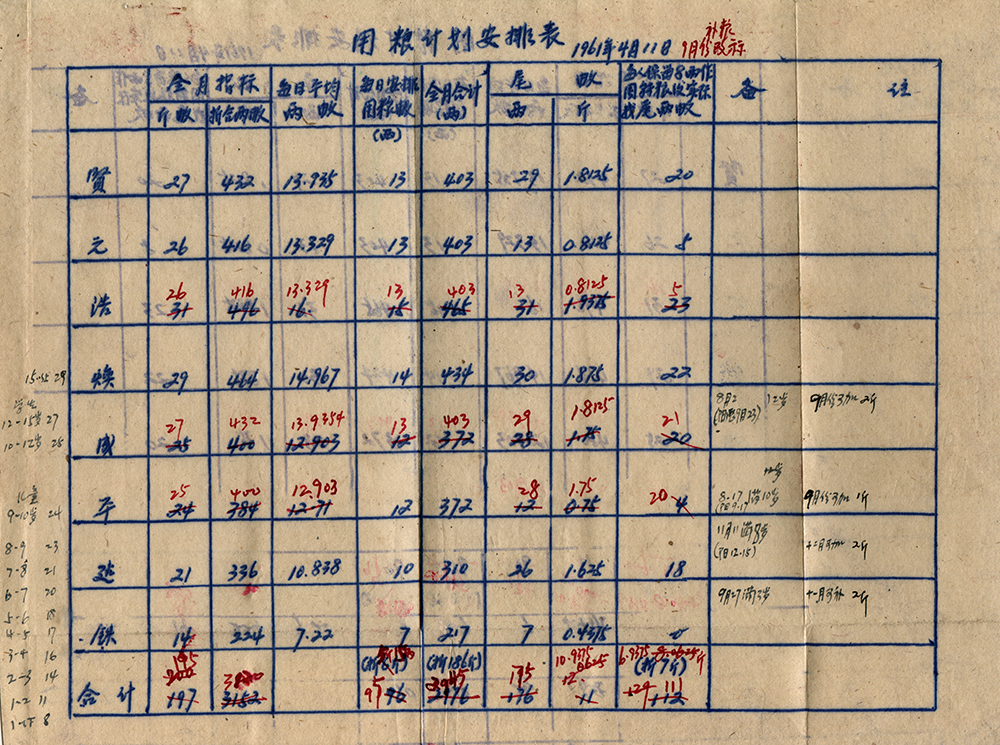 用粮计划安排表 1961年4月11日
补粮
9月份改标
全月指标 每日平均两数 每日安排用粮数(两) 全月合计(两) 尾数 备 注
斤数 折合两数 两 斤
贤 27 432 13.935 13 403 29 1.8125 20
元 26 416 13.329 13 403 13 0.8125 5
26 416 13.329 13 403 13 0.8125 5
浩 31 496 16. 15 465 31 1.9375 23
焕 29 464 14.967 14 434 30 1.875 22
27 432 13.9354 13 403 29 1.8125 21
成 25 400 12.903 12 372 28 1.75 20
8月2 12岁 9月份可加2斤
25 400 12.903 28 1.75 20
平 24 384 12.71 12 372 12 0.75 4
12岁
8.17 满10岁 9月份可加1斤
21 336 10.838 10 310 26 1.625 18
11月11满8岁
(阳12.15) 十二月可加2斤
铁 14 224 7.22 7 217 7 0.4375 0
9月27满3岁 十一月可补2斤
(折6斤) (折186斤) (折7斤)
195 175 10.9375 6.9375
合计 197 3152 96 2976 176 11 112
15岁 29
学生
12-15岁 27
10-12岁 25
儿童
9-10岁 24
8-9 23
7-8 21
6-7 20
5-6 18
4-5 17
3-4 16
2-3 14
1-2 11
1-下 8